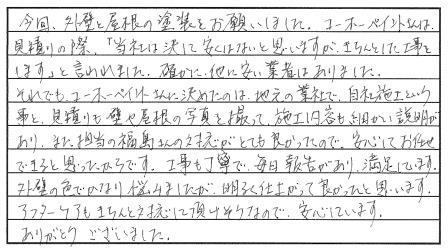 今回、外壁と屋根の塗装をお願いしました。ユーホーペイントさんは、
見積りの際、「当社は決して安くはないと思いますが、きちんとした工事を
します」と言われました。確かに、他に安い業者はありました。
それでも、ユーホーペイントさんに決めたのは、地元の業社で、自社施工という
事と、見積りも壁や屋根の写真を撮って、施工内容も細かい説明が
あり、また担当の福島さんの対応がとても良かったので、安心してお任せ
できると思ったからです。工事も丁寧で、毎日報告があり、満足しています。
外壁の色でかなり悩みましたが、明るく仕上がって良かったと思います。
アフターケアもきちんと対応して頂けそうなので、安心しています。
ありがとうございました。